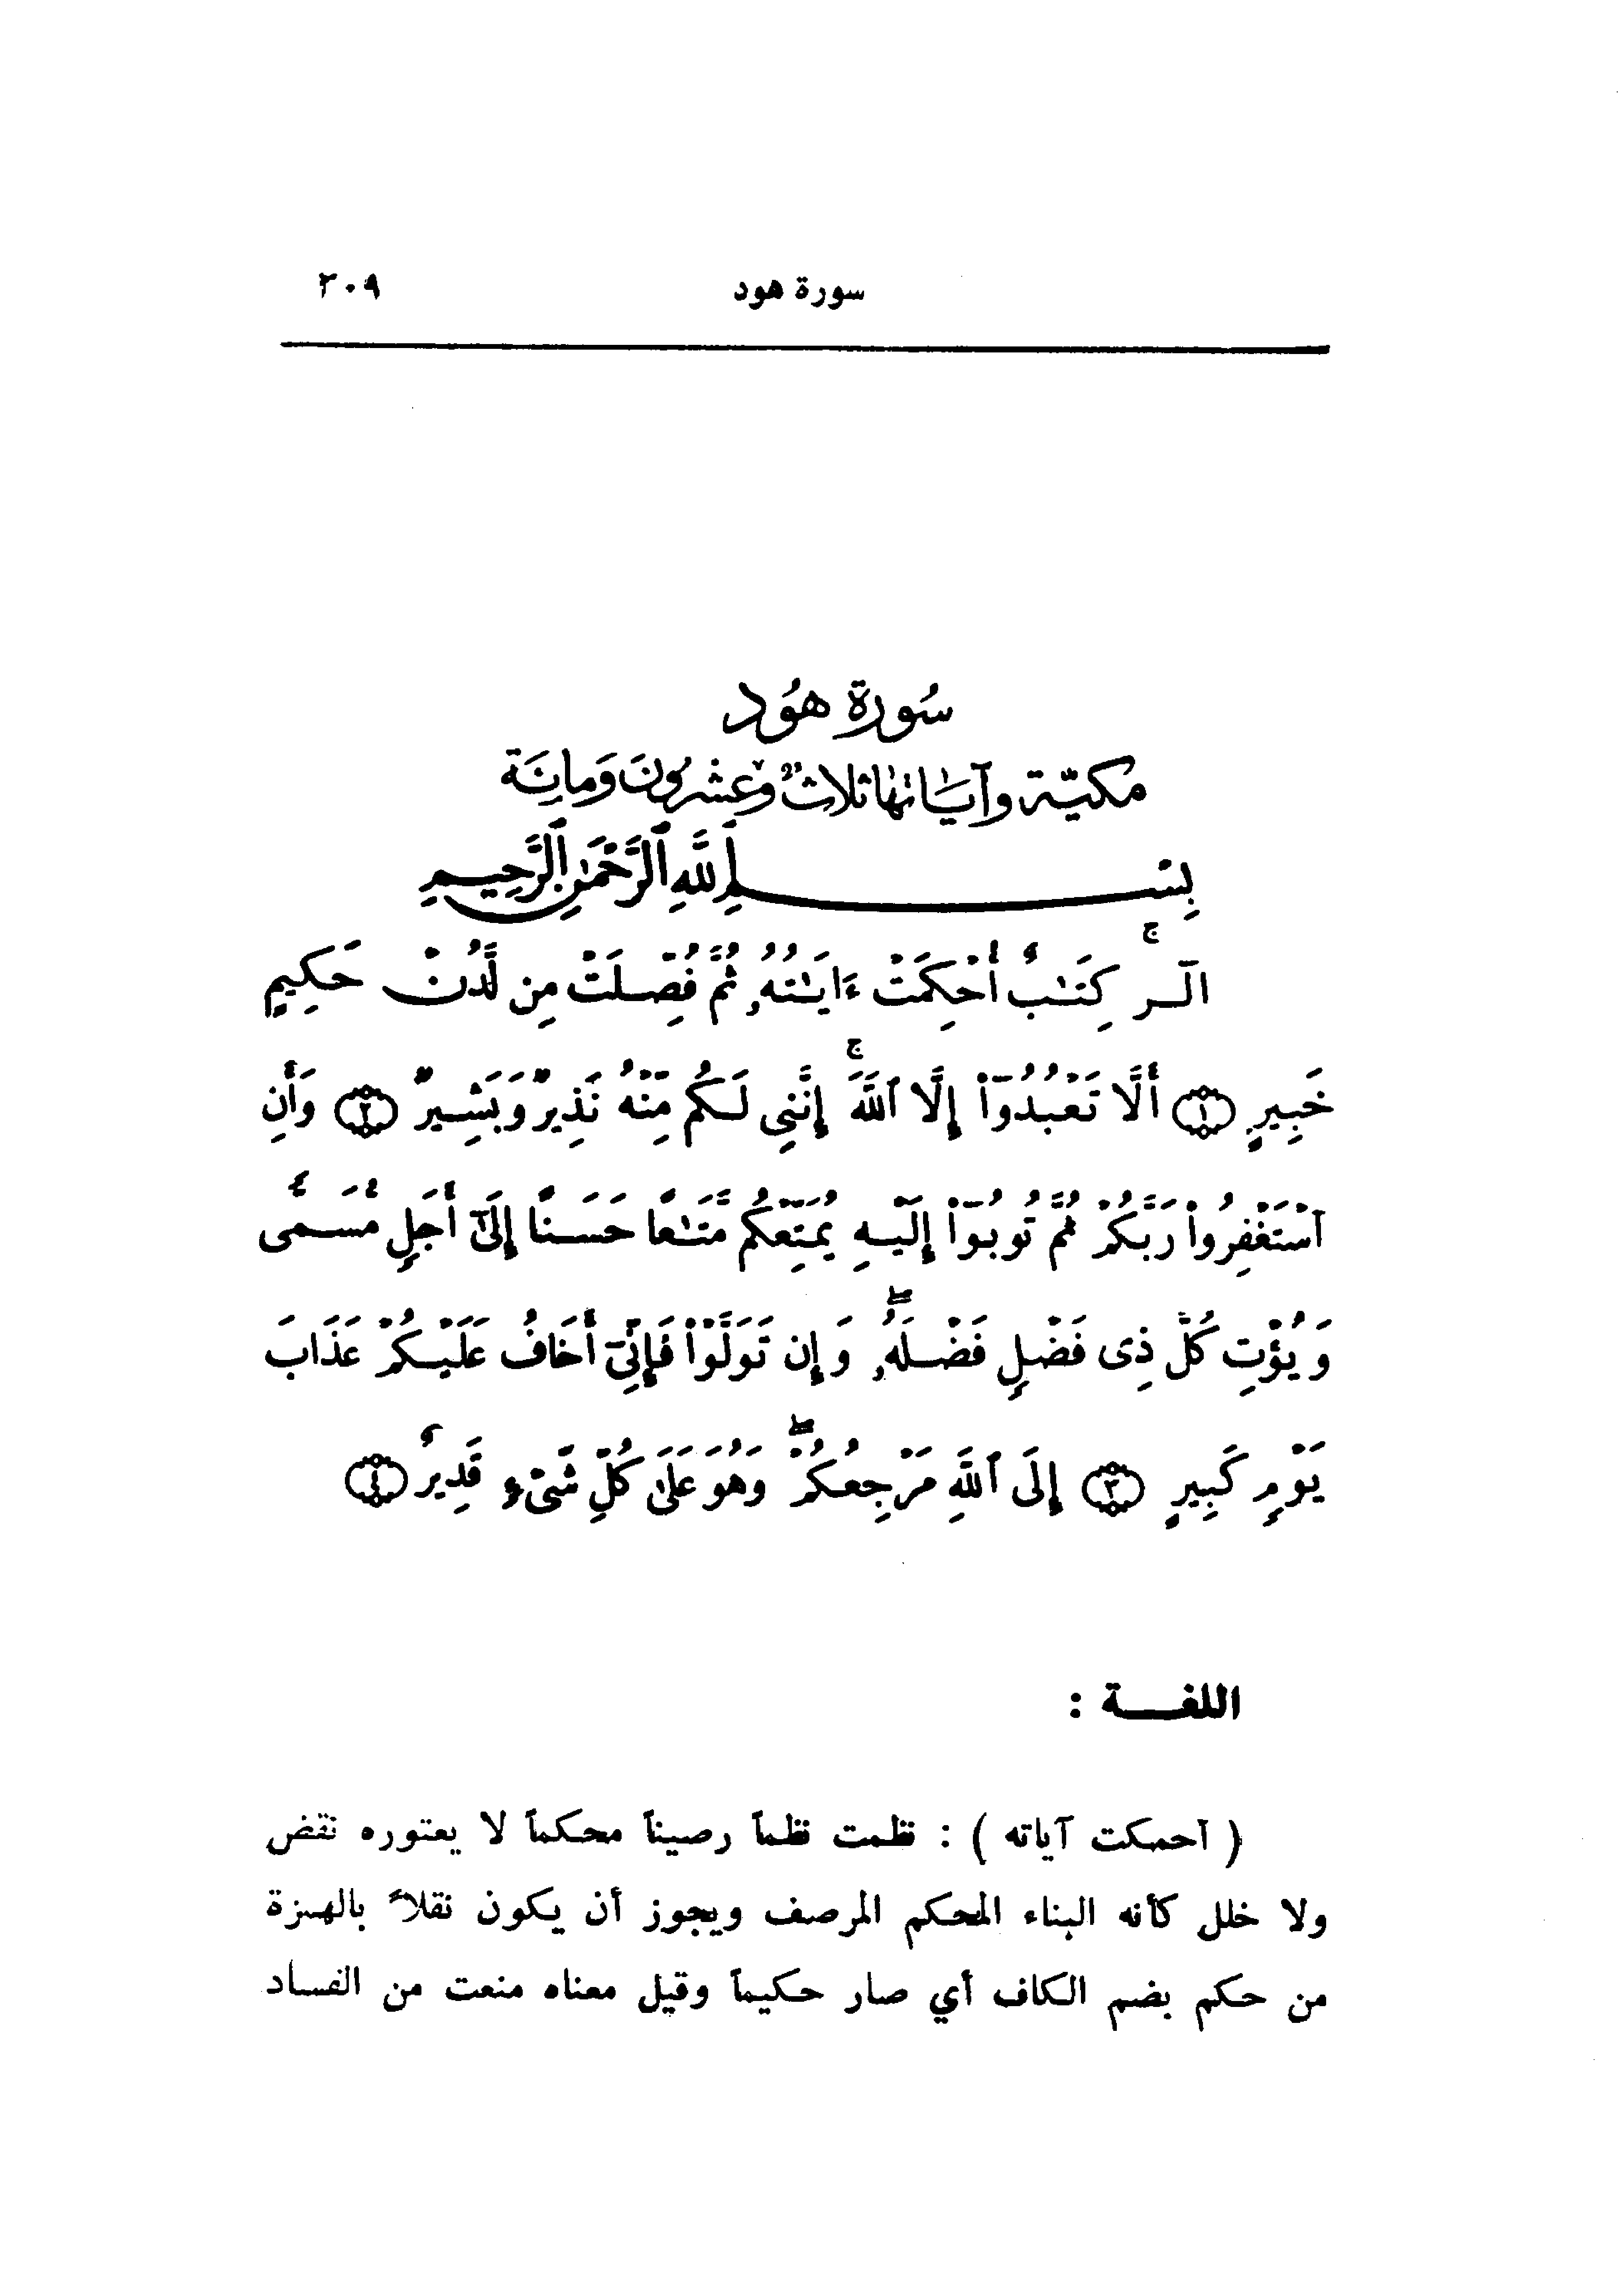 سورة هود ٣٠٩
سُورة هُود
مكيّة وآيَاتها ثلاثٌ وعشرونَ وَمائة
بِسْمِ ٱللَّهِ ٱلرَّحْمَٰنِ ٱلرَّحِيمِ
الٓر ۚ كِتَٰبٌ أُحْكِمَتْ ءَايَٰتُهُۥ ثُمَّ فُصِّلَتْ مِن لَّدُنْ حَكِيمٍ
خَبِيرٍ ١ أَلَّا تَعْبُدُوٓا۟ إِلَّا ٱللَّهَ ۚ إِنَّنِى لَكُم مِّنْهُ نَذِيرٌ وَبَشِيرٌ ٢ وَأَنِ
ٱسْتَغْفِرُوا۟ رَبَّكُمْ ثُمَّ تُوبُوٓا۟ إِلَيْهِ يُمَتِّعْكُم مَّتَٰعًا حَسَنًا إِلَىٰٓ أَجَلٍ مُّسَمًّى
وَيُؤْتِ كُلَّ ذِى فَضْلٍ فَضْلَهُۥ ۖ وَإِن تَوَلَّوْا۟ فَإِنِّىٓ أَخَافُ عَلَيْكُمْ عَذَابَ
يَوْمٍ كَبِيرٍ ٣ إِلَى ٱللَّهِ مَرْجِعُكُمْ ۖ وَهُوَ عَلَىٰ كُلِّ شَىْءٍ قَدِيرٌ ٤
اللغـــة :
( أحكمت آياته ) : نظمت نظماً رصيناً محكماً لا يعتوره نقض
ولا خلل كأنه البناء المحكم المرصف ويجوز أن يكون نقلاً بالهمزة
من حكم بضم الكاف أي صار حكيماً وقيل معناه منعت من الفساد